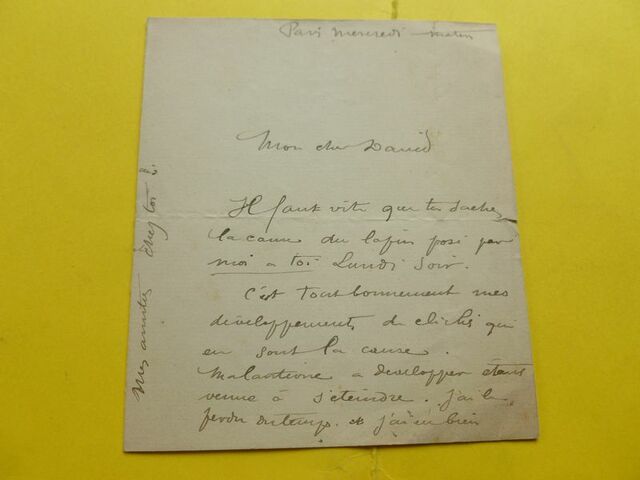 Paris mercredi matin
Mon cher David
Il faut vite que tu saches
la cause du lapin posé par
moi a toi Lundi soir.
C'est tout bonnement mes
développements de clichés qui
en sont la cause.
Ma lanterne a developper étant
venue à s'eteindre. j'ai
perdu du temps. et j'ai eu bien
Mes amitiés chez toi